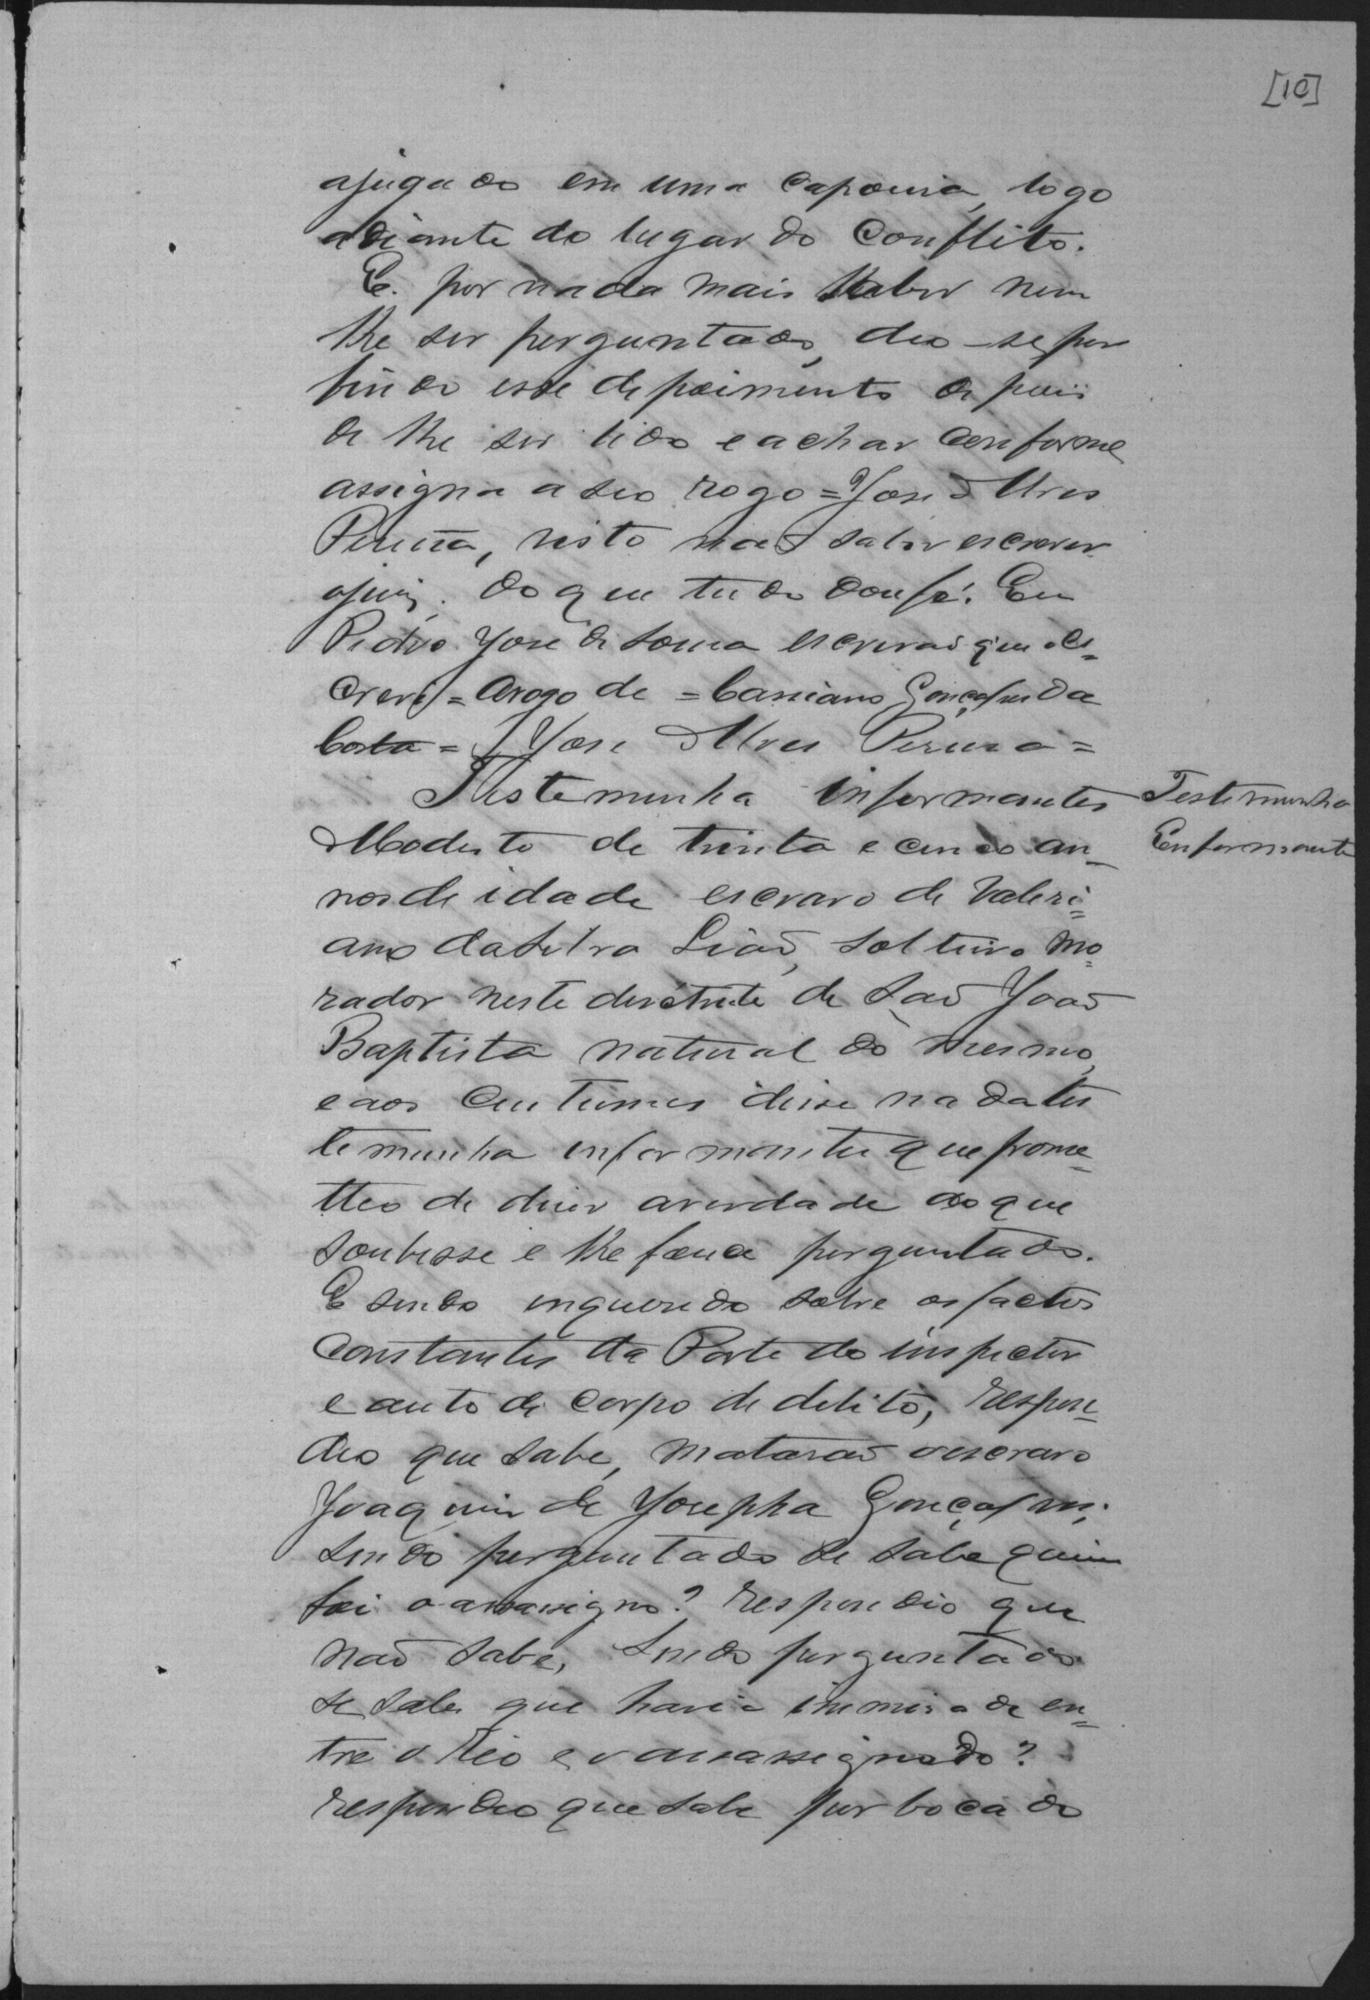 [10]
ajugado em uma capoeira, logo
adiante do lugar do Conflito.
E. por nada mais Saber nem
lhe ser perguntado, deo-se por
findo este depoimento depois
de lhe ser lido e achar Conforme
assigna a seo rogo = Jose Alves
Pereira, visto não saber escrever
o juiz. do que tudo dou fé. Eu
Pedro Jose de Sousa escrivaõ que es-
crevi = Arogo de = Cassiano Gonçalves da
Costa = Jose Alves Pereira =
Testemunha informantes
Testemunha
Enformante
Modesto de trinta e cinco an-
nos de idade escravo de Valeri-
ano da Silva Liaõ, solteiro mo-
rador neste destricto de Saõ Joaõ
Baptista natural do mesmo,
e aos Custumes disse nada tes
temunha informante que prome-
tteo de diser averdade do que
Soubesse e lhe fosse perguntado.
E sendo inquerido sobre os factos
Constantes da Parte do inspector
e auto de corpo de delito, respon-
deo que sabe, mataraõ oescravo
Joaquim de Josepha Gonçalves;
Sendo perguntado se sabe quem
foi o assassigno? respondeo que
naõ sabe, Sendo perguntado
se sabe que havia inimisade en-
tre o Reo e o assassignado?
respondeo que sabe por boca do